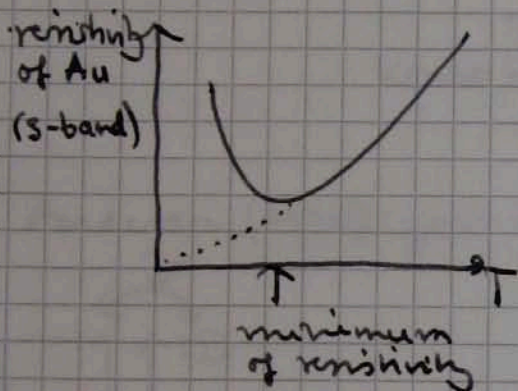 resistivity
of Au
(s-band)
T
minimum
of resistivity